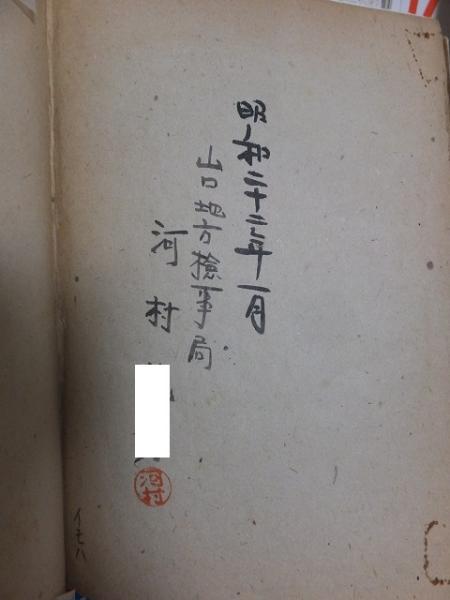 昭和二十二年一月
山口地方檢事局
河村
河村
イモハ